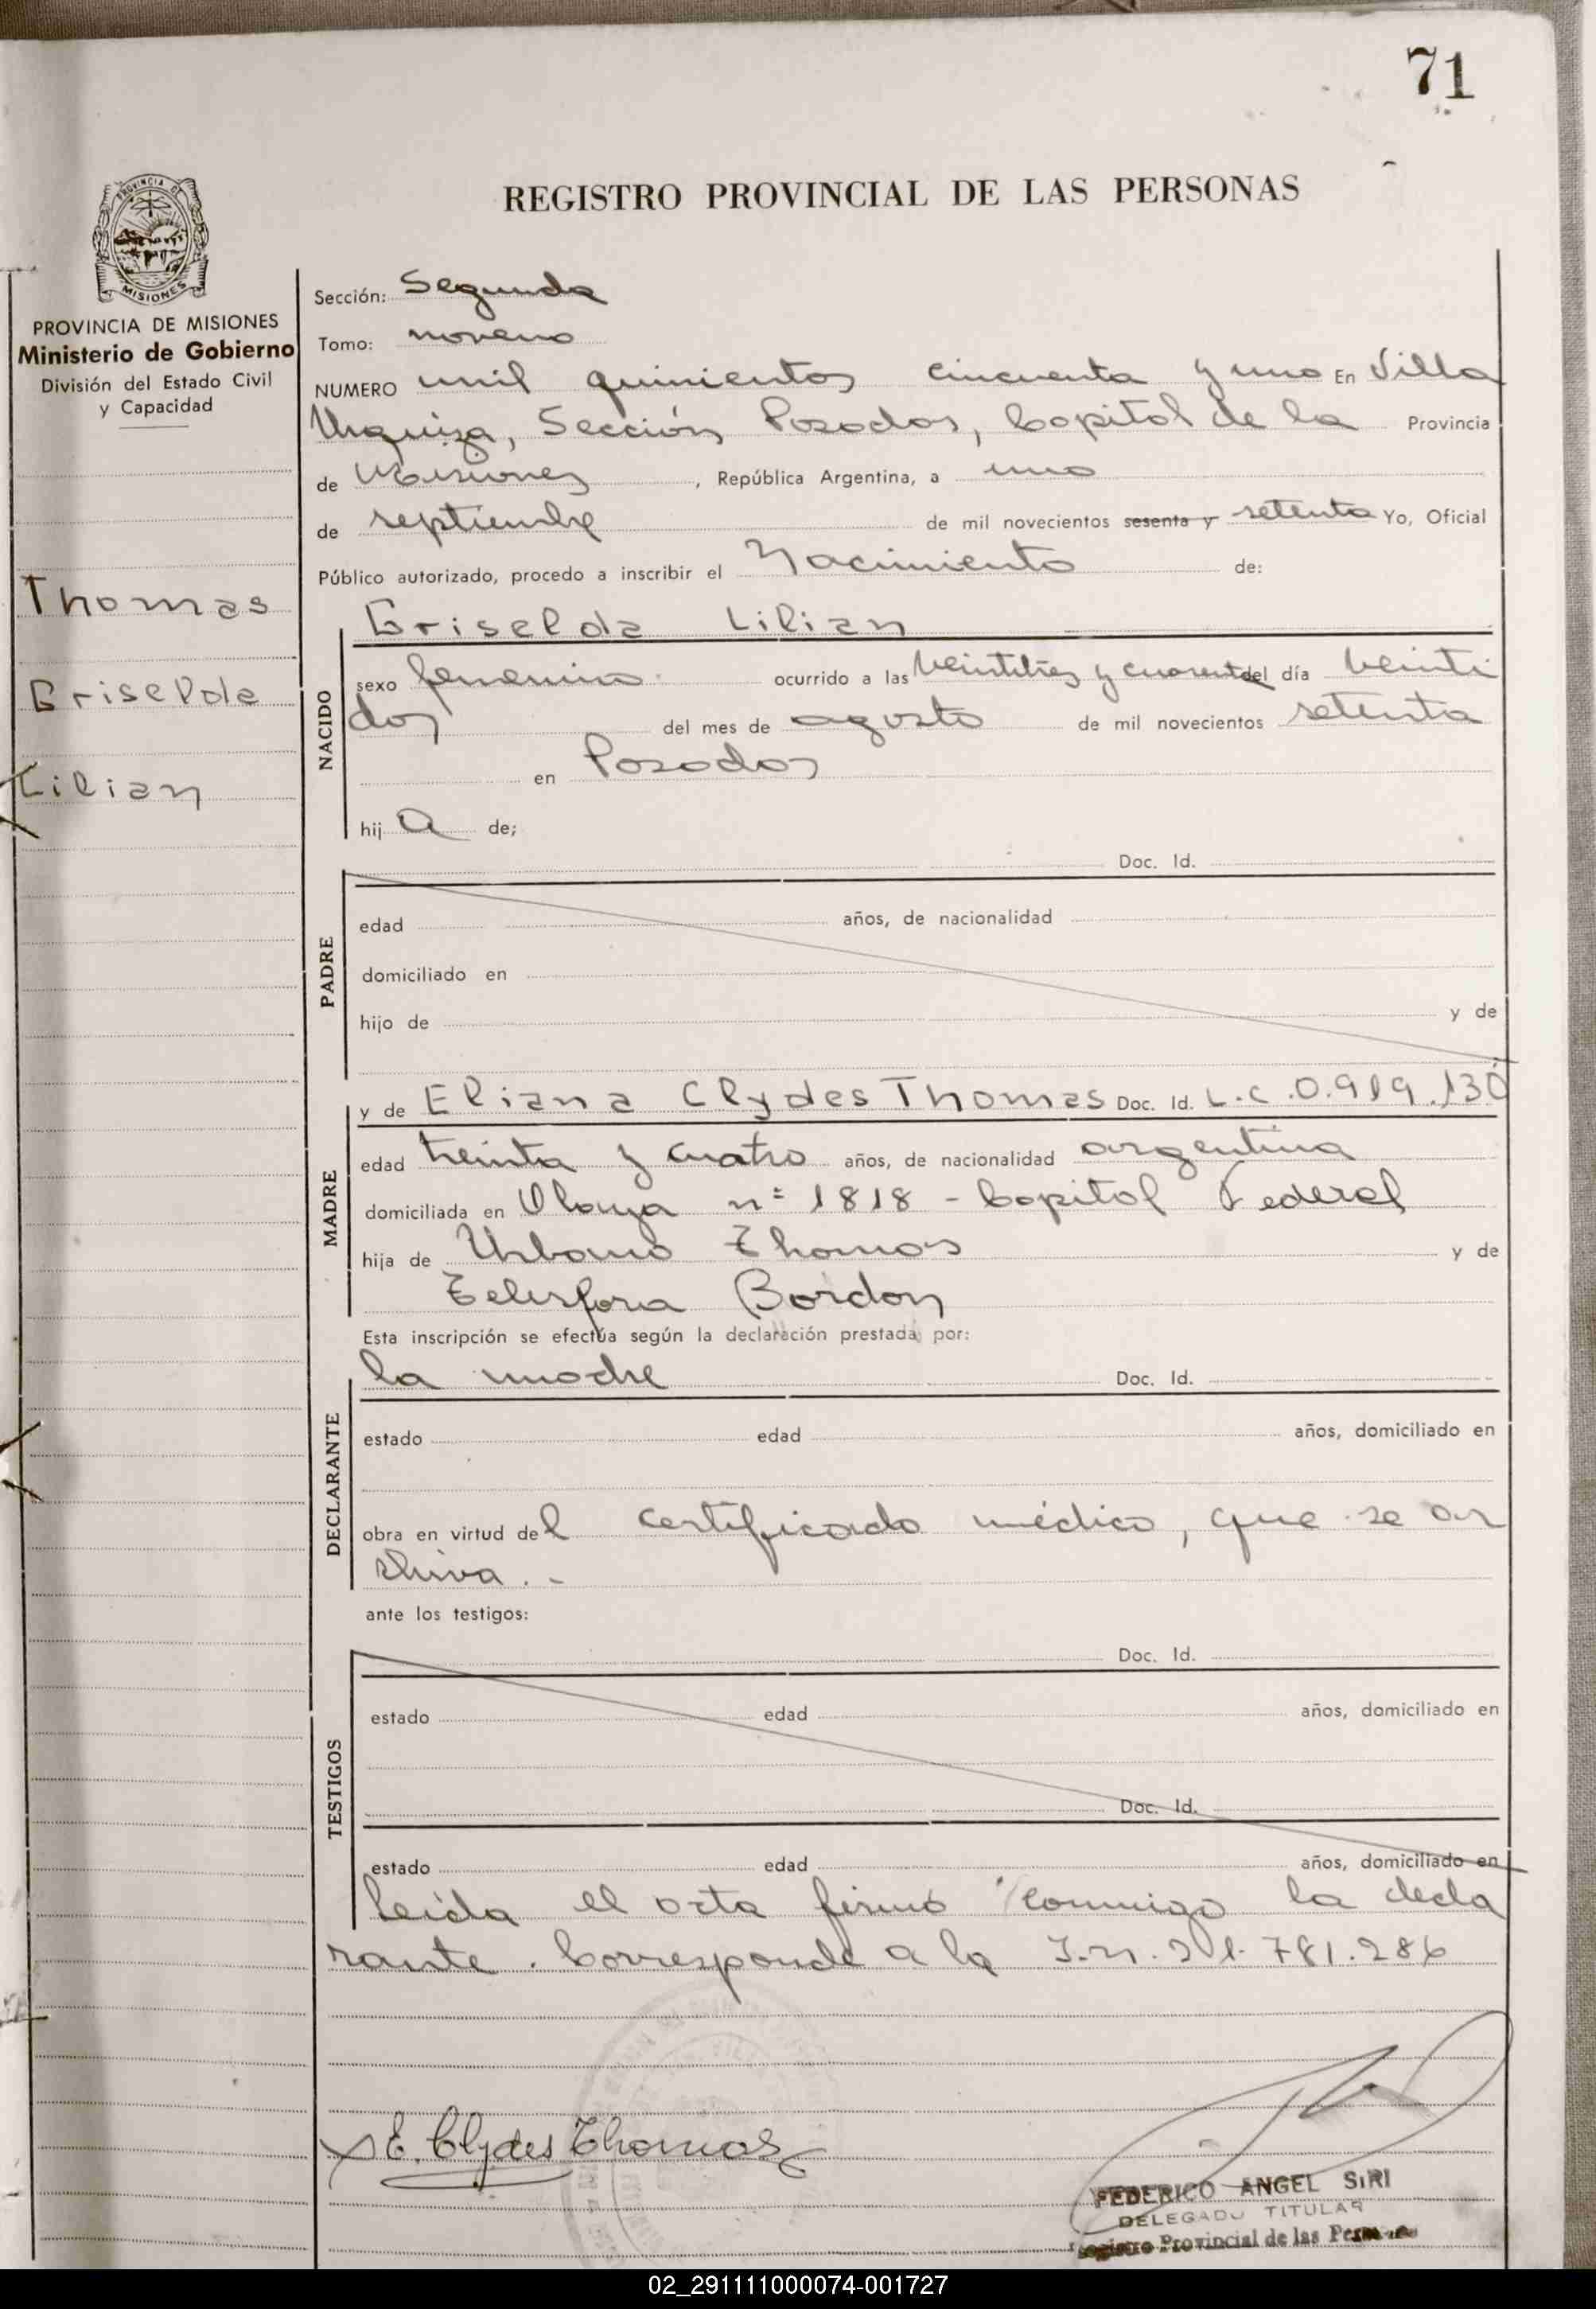 71
REGISTRO PROVINCIAL DE LAS PERSONAS
PROVINCIA DE
MISIONES
PROVINCIA DE MISIONES
Ministerio de Gobierno
División del Estado Civil
y Capacidad
Thomas
Griselda
Lilian
Sección: Segunda
Tomo: noveno
NUMERO mil quinientos cincuenta y uno En Villa
Urquiza, Sección Posadas, Capital de la Provincia
de Misiones, República Argentina, a uno
de septiembre de mil novecientos sesenta y setenta Yo, Oficial
Público autorizado, procedo a inscribir el Nacimiento de:
NACIDO
Griselda Lilian
sexo femenino ocurrido a las veintitres y cuarenta del día veinti
dos del mes de agosto de mil novecientos setenta
en Posadas
hij a de;
PADRE
Doc. Id.
edad años, de nacionalidad
domiciliado en
hijo de y de
MADRE
y de Eliana Clydes Thomas Doc. Id. L.C. 0.919.130
edad treinta y cuatro años, de nacionalidad argentina
domiciliada en nº 1818 - Capital Federal
hija de Urbano Thomas y de
Telesfora Bordon
Esta inscripción se efectúa según la declaración prestada por:
DECLARANTE
la madre Doc. Id.
estado edad años, domiciliado en
obra en virtud del certificado médico, que se ar
chiva.-
ante los testigos:
TESTIGOS
Doc. Id.
estado edad años, domiciliado en
Doc. Id.
estado edad años, domiciliado en
Leída el acta firmó conmigo la decla
rante. Corresponde a la I.n. 21.781.286
E. Clydes Thomas
FEDERICO ANGEL SIRI
DELEGADO TITULAR
Registro Provincial de las Personas
02_291111000074-001727